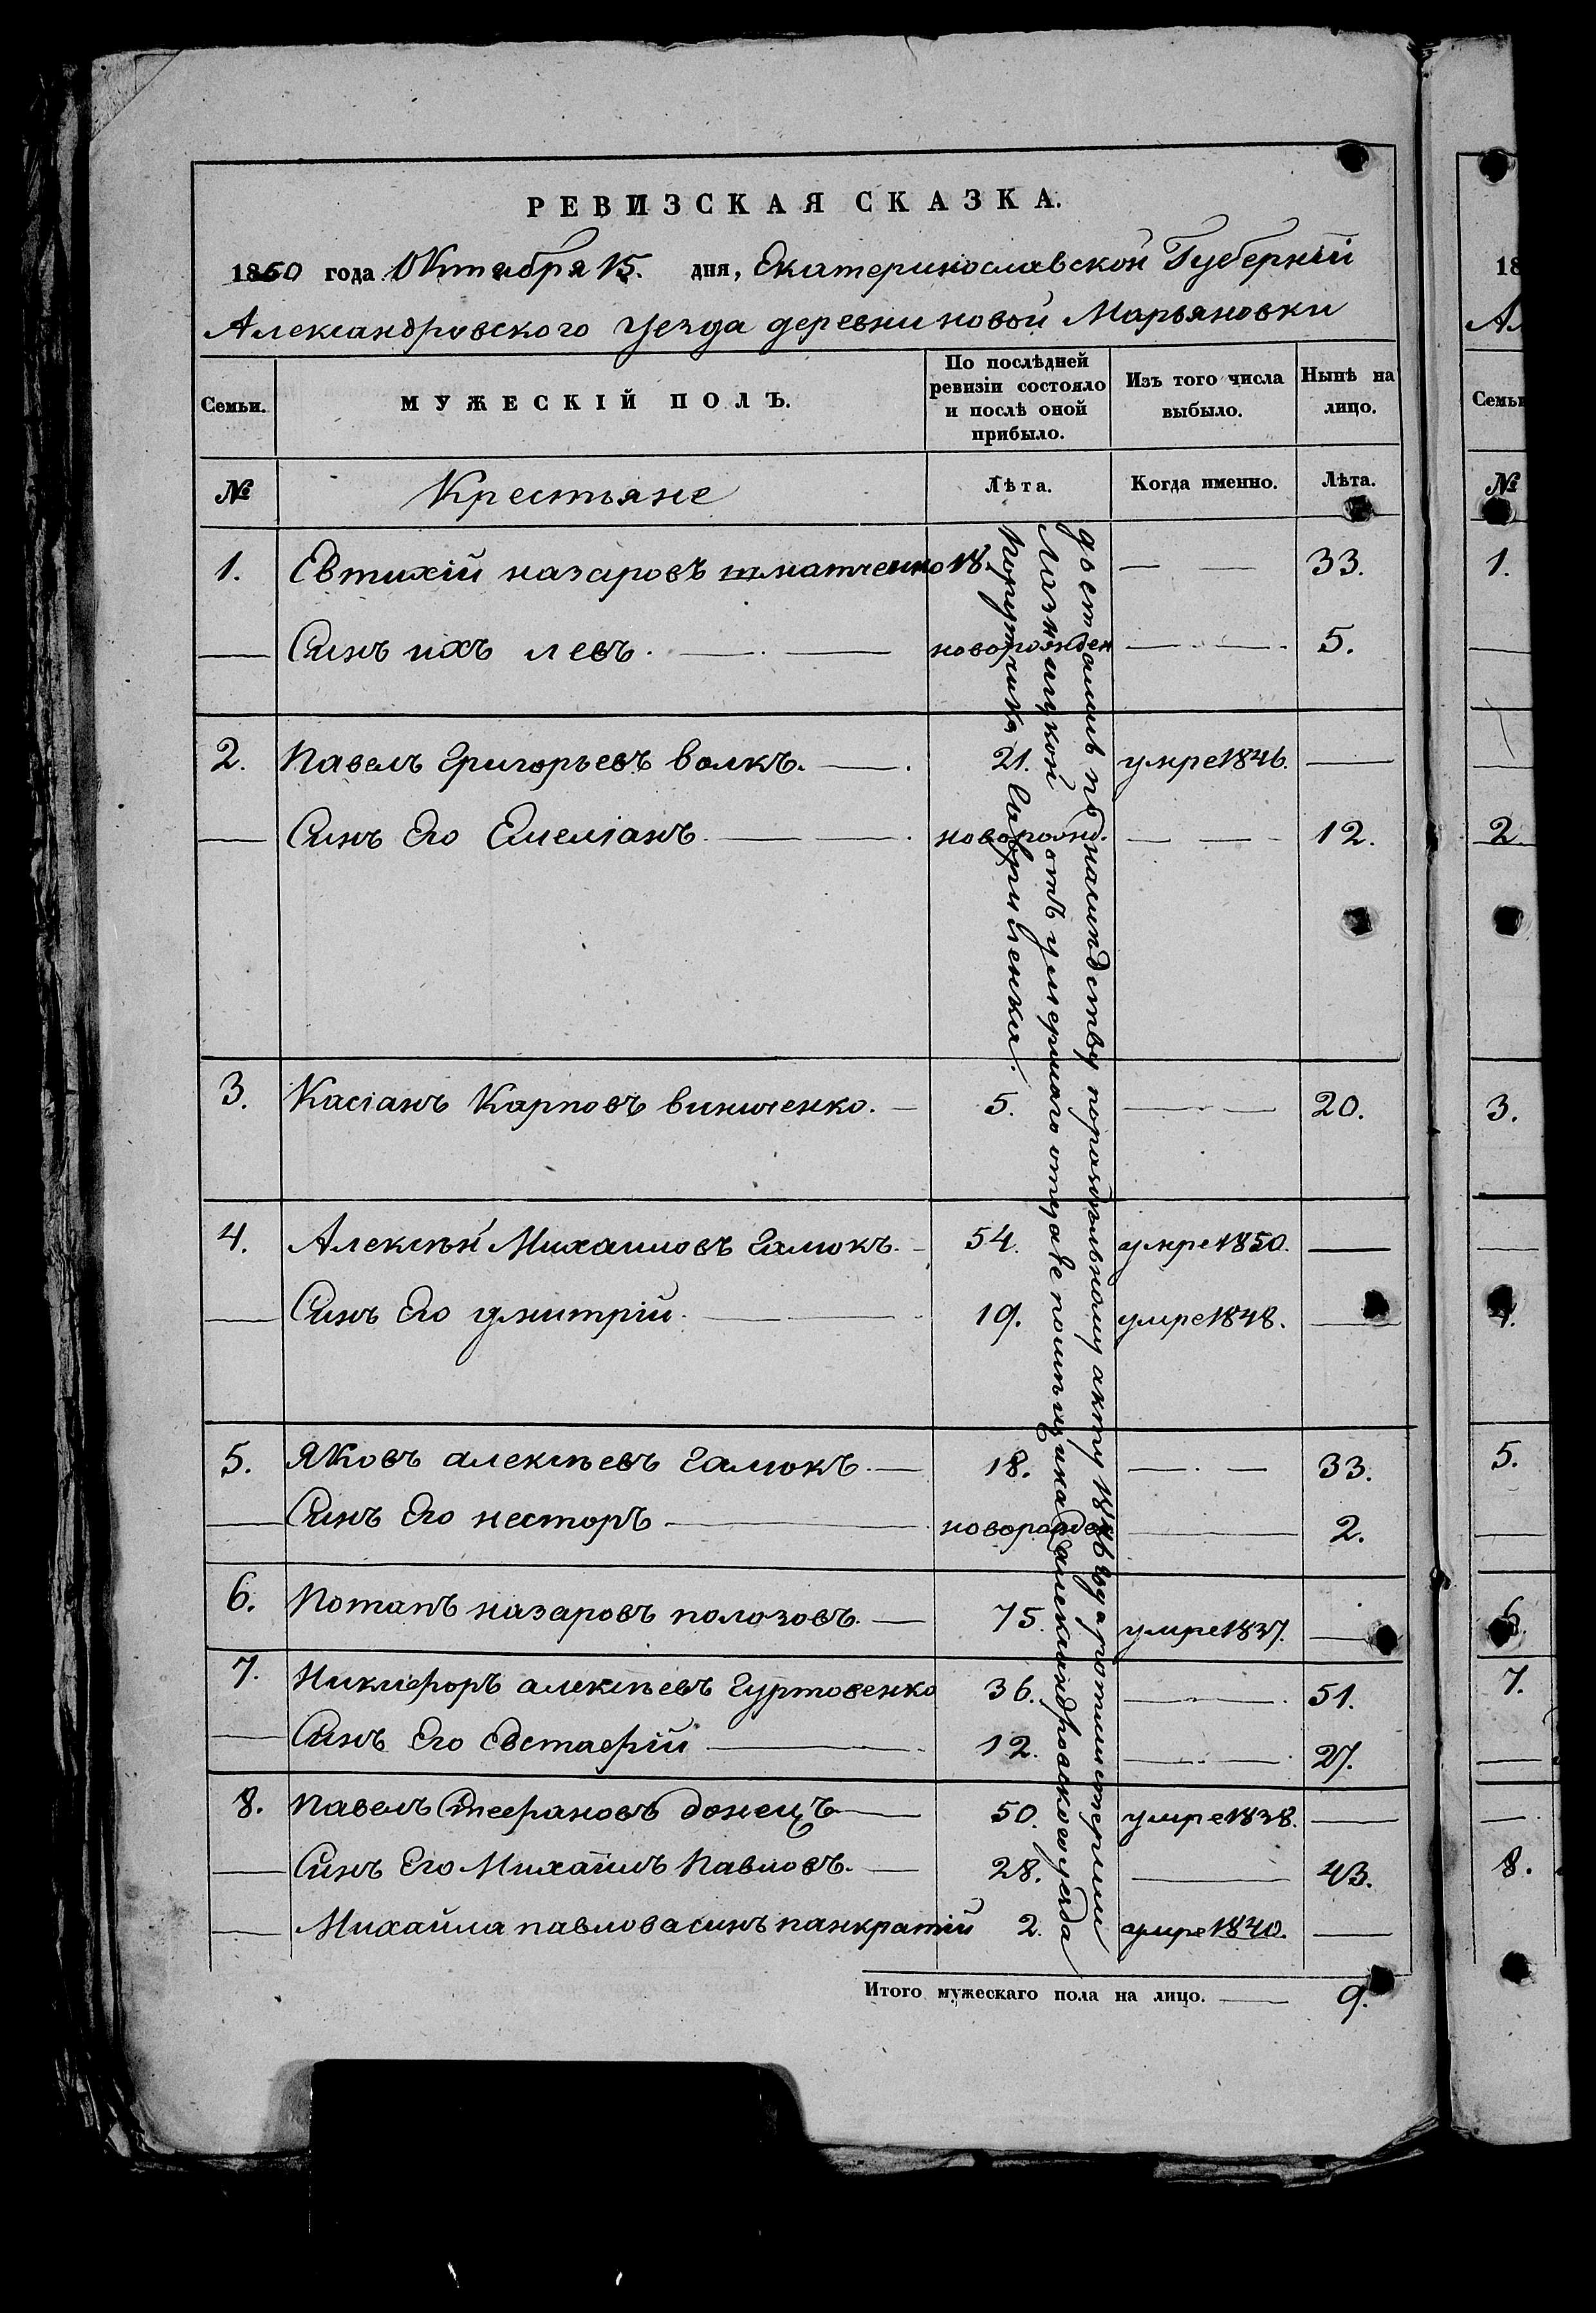 РЕВИЗСКАЯ СКАЗКА.
1850 года Октября 15. дня, Екатеринославской Губерніи
Александровского уезда деревни новой Марьяновки
Семьи. МУЖЕСКІЙ ПОЛЪ. По послѣдней ревизіи состояло и послѣ оной прибыло. Изъ того числа выбыло. Нынѣ на лицо.
№ Крестьяне Лѣта. Когда именно. Лѣта.
1. Евтихій назаровъ 18. — — 33.
— Синъ ихъ левъ. — — новорожден — — 5.
2. Павелъ Григорьевъ волкъ. — 21. умре 1846. —
— Синъ Его Емеліанъ — — новорожд. — — 12.
3. Касіанъ Карповъ винниченко. — 5. — — 20.
4. Алексѣй Михаиловъ Галюкъ. — 54. умре 1850. —
— Синъ Его дмитрій. — — 19. умре 1848. —
5. Яковъ алексѣевъ Галюкъ. — 18. — — 33.
— Синъ Его несторъ — новорожден — 2.
6. Потапъ назаровъ полозовъ. — 75. умре 1837. —
7. Никиѳоръ алексѣевъ Гуртовенко 36. — — 51.
— Синъ Его Евстафій — 12. — — 27.
8. Павелъ Стефановъ донецъ — 50. умре 1838. —
— Синъ Его Михаилъ Павловъ. — 28. — 43.
— Михайла павлова синъ панкратій 2. умре 1840. —
Итого мужескаго пола на лицо. — 9.
достались по наслѣдству
отъ умершаго отца ее помѣщика александровского уезда
поручика Гавриленка.
18
Ал
Семьи
№
1.
2
3.
4.
5.
6.
7.
8.